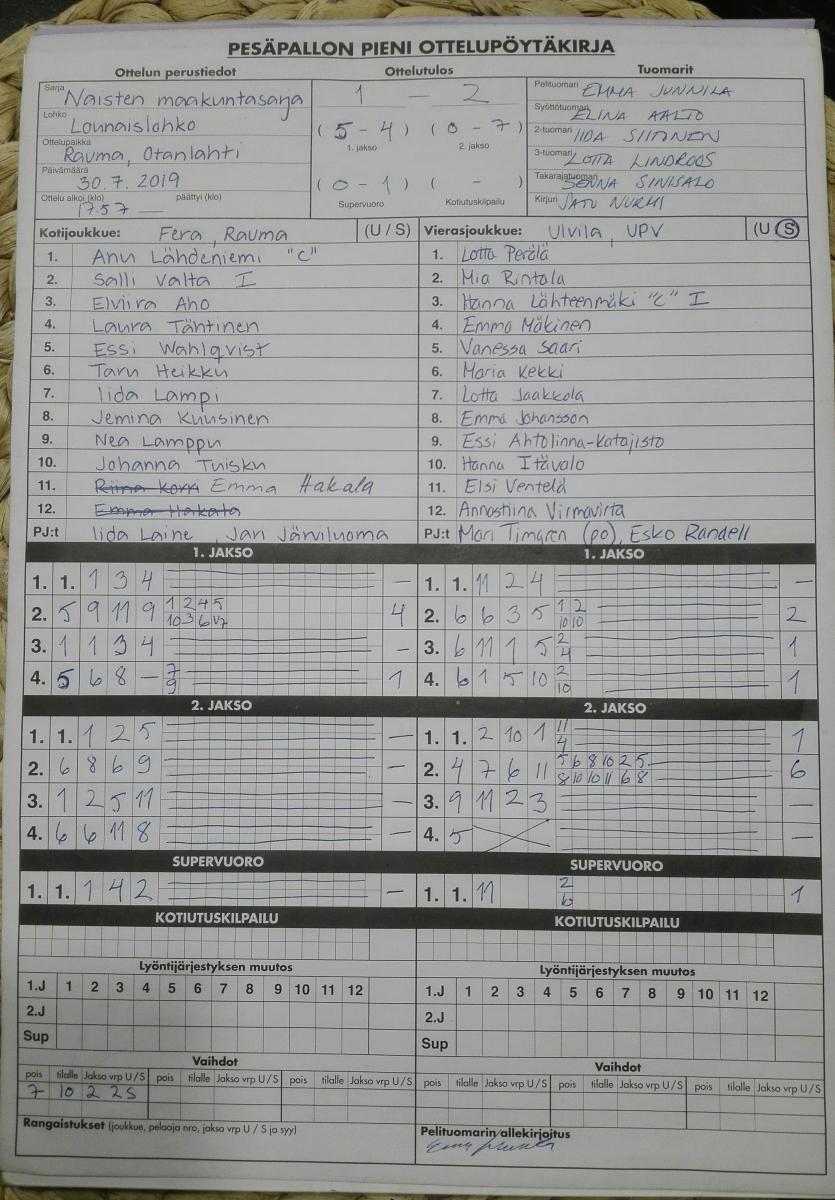 PESÄPALLON PIENI OTTELUPÖYTÄKIRJA
Ottelun perustiedot
Sarja
Naisten maakuntasarja
Lohko
Lounaislohko
Ottelupaikka
Rauma, Otanlahti
Päivämäärä
30.7. 2019
Ottelu alkoi (klo) päättyi (klo)
17.57 —
Ottelutulos
1 — 2
(5 - 4) (0 - 7)
1. jakso 2. jakso
(0 - 1) ( - )
Supervuoro Kotiutuskilpailu
Tuomarit
Pelituomari EMMA JUNNILA
Syöttötuomari ELINA AALTO
2-tuomari IIDA SIITONEN
3-tuomari LOTTA LINDROOS
Takarajatuomari SENNA SINISALO
Kirjuri SATU NURMI
Kotijoukkue: Fera, Rauma (U / S)
1. Anu Lähdeniemi "C"
2. Salli Valta I
3. Elviira Aho
4. Laura Tähtinen
5. Essi Wahlqvist
6. Taru Heikku
7. Iida Lampi
8. Jemina Kuusinen
9. Nea Lamppu
10. Johanna Tuisku
11. Riina Korri Emma Hakala
12. Emma Hakala
PJ:t Iida Laine, Jari Järviluoma
Vierasjoukkue: Ulvila, UPV (U S)
1. Lotta Perälä
2. Mia Rintala
3. Hanna Lähteenmäki "C" I
4. Emma Mäkinen
5. Vanessa Saari
6. Maria Kekki
7. Lotta Jaakkola
8. Emma Johansson
9. Essi Ahtolinna-Katajisto
10. Hanna Itävalo
11. Elsi Ventelä
12. Annastiina Virmavirta
PJ:t Mari Timgren (po), Esko Randell
1. JAKSO
1. 1. 1 3 4 —
2. 5 9 11 9 1 2 4 5 4
10 3 6 7
3. 1 1 3 4 —
4. 5 6 8 — 7 1
9
2. JAKSO
1. 1. 1 2 5 —
2. 6 8 6 9 —
3. 1 2 5 11 —
4. 6 6 11 8 —
SUPERVUORO
1. 1. 1 4 2 —
KOTIUTUSKILPAILU
1. JAKSO
1. 1. 11 2 4 —
2. 6 6 3 5 1 2 2
10 10
3. 6 11 1 5 2 1
4
4. 6 1 5 10 2 1
10
2. JAKSO
1. 1. 2 10 1 11 1
4
2. 4 7 6 11 5 6 8 10 2 5 6
8 10 10 11 6 8
3. 9 11 2 3 —
4. 5 —
SUPERVUORO
1. 1. 11 2 1
6
KOTIUTUSKILPAILU
Lyöntijärjestyksen muutos
1.J 1 2 3 4 5 6 7 8 9 10 11 12
2.J
Sup
Lyöntijärjestyksen muutos
1.J 1 2 3 4 5 6 7 8 9 10 11 12
2.J
Sup
Vaihdot
pois tilalle Jakso vrp U / S pois tilalle Jakso vrp U / S pois tilalle Jakso vrp U / S
7 10 2 2S
Vaihdot
pois tilalle Jakso vrp U / S pois tilalle Jakso vrp U / S pois tilalle Jakso vrp U / S
Rangaistukset (joukkue, pelaaja nro, jakso vrp U / S ja syy)
Pelituomarin allekirjoitus